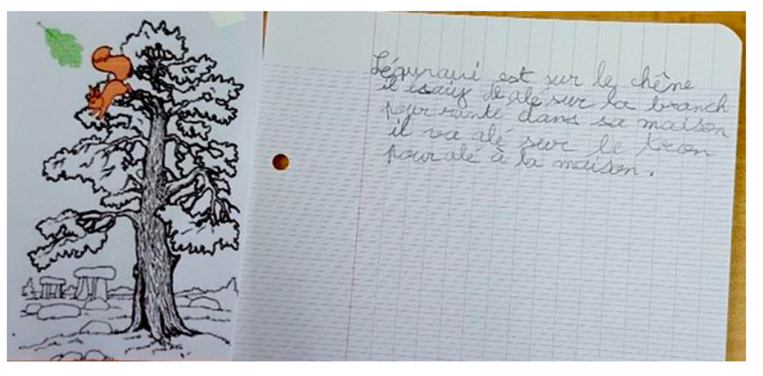 Lécurauie est sur le chêne
il esaiy de ale sur la branch
pour rante dans sa maison
il va alé sur le tron
pour alé à la maison.